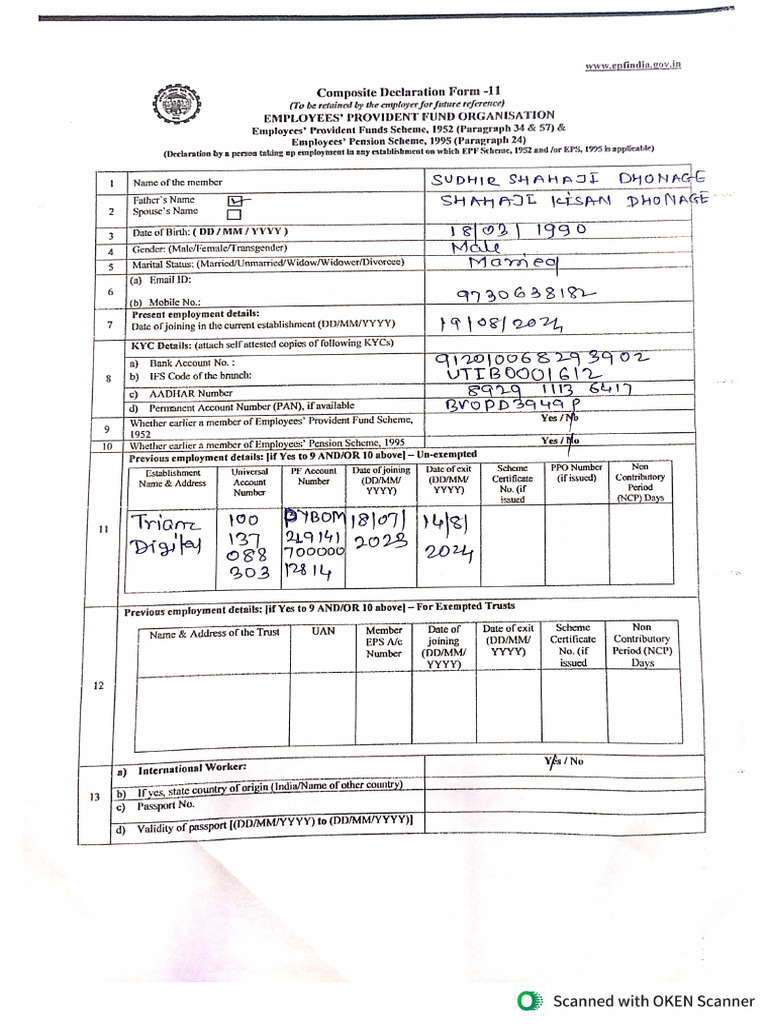 www.epfindia.gov.in
Composite Declaration Form -11
(To be retained by the employer for future reference)
EMPLOYEES' PROVIDENT FUND ORGANISATION
Employees' Provident Funds Scheme, 1952 (Paragraph 34 & 57) &
Employees' Pension Scheme, 1995 (Paragraph 24)
(Declaration by a person taking up employment in any establishment on which EPF Scheme, 1952 and /or EPS, 1995 is applicable)
1 Name of the member SUDHIR SHAHAJI DHONAGE
2 Father's Name SHAHAJI KISAN DHONAGE
Spouse's Name
3 Date of Birth: ( DD / MM / YYYY ) 18/03/1990
4 Gender: (Male/Female/Transgender) Male
5 Marital Status: (Married/Unmarried/Widow/Widower/Divorcee) Married
6 (a) Email ID:
(b) Mobile No.: 9730638182
7 Present employment details:
Date of joining in the current establishment (DD/MM/YYYY) 19/08/2024
8 KYC Details: (attach self attested copies of following KYCs)
a) Bank Account No. : 912010068293902
b) IFS Code of the branch: UTIB0001612
c) AADHAR Number 8929 1113 6417
d) Permanent Account Number (PAN), if available BVOPD3949P
9 Whether earlier a member of Employees' Provident Fund Scheme, 1952 Yes / No
10 Whether earlier a member of Employees' Pension Scheme, 1995 Yes / No
11 Previous employment details: [if Yes to 9 AND/OR 10 above] – Un-exempted
Establishment Name & Address
Universal Account Number
PF Account Number
Date of joining (DD/MM/ YYYY)
Date of exit (DD/MM/ YYYY)
Scheme Certificate No. (if issued
PPO Number (if issued)
Non Contributory Period (NCP) Days
Digital
100 137 088 303
PYBOM 219141 700000 12814
18/07/ 2023
14/8/ 2024
12 Previous employment details: [if Yes to 9 AND/OR 10 above] – For Exempted Trusts
Name & Address of the Trust
UAN
Member EPS A/c Number
Date of joining (DD/MM/ YYYY)
Date of exit (DD/MM/ YYYY)
Scheme Certificate No. (if issued
Non Contributory Period (NCP) Days
13 a) International Worker: Yes / No
b) If yes, state country of origin (India/Name of other country)
c) Passport No.
d) Validity of passport [(DD/MM/YYYY) to (DD/MM/YYYY)]
Scanned with OKEN Scanner